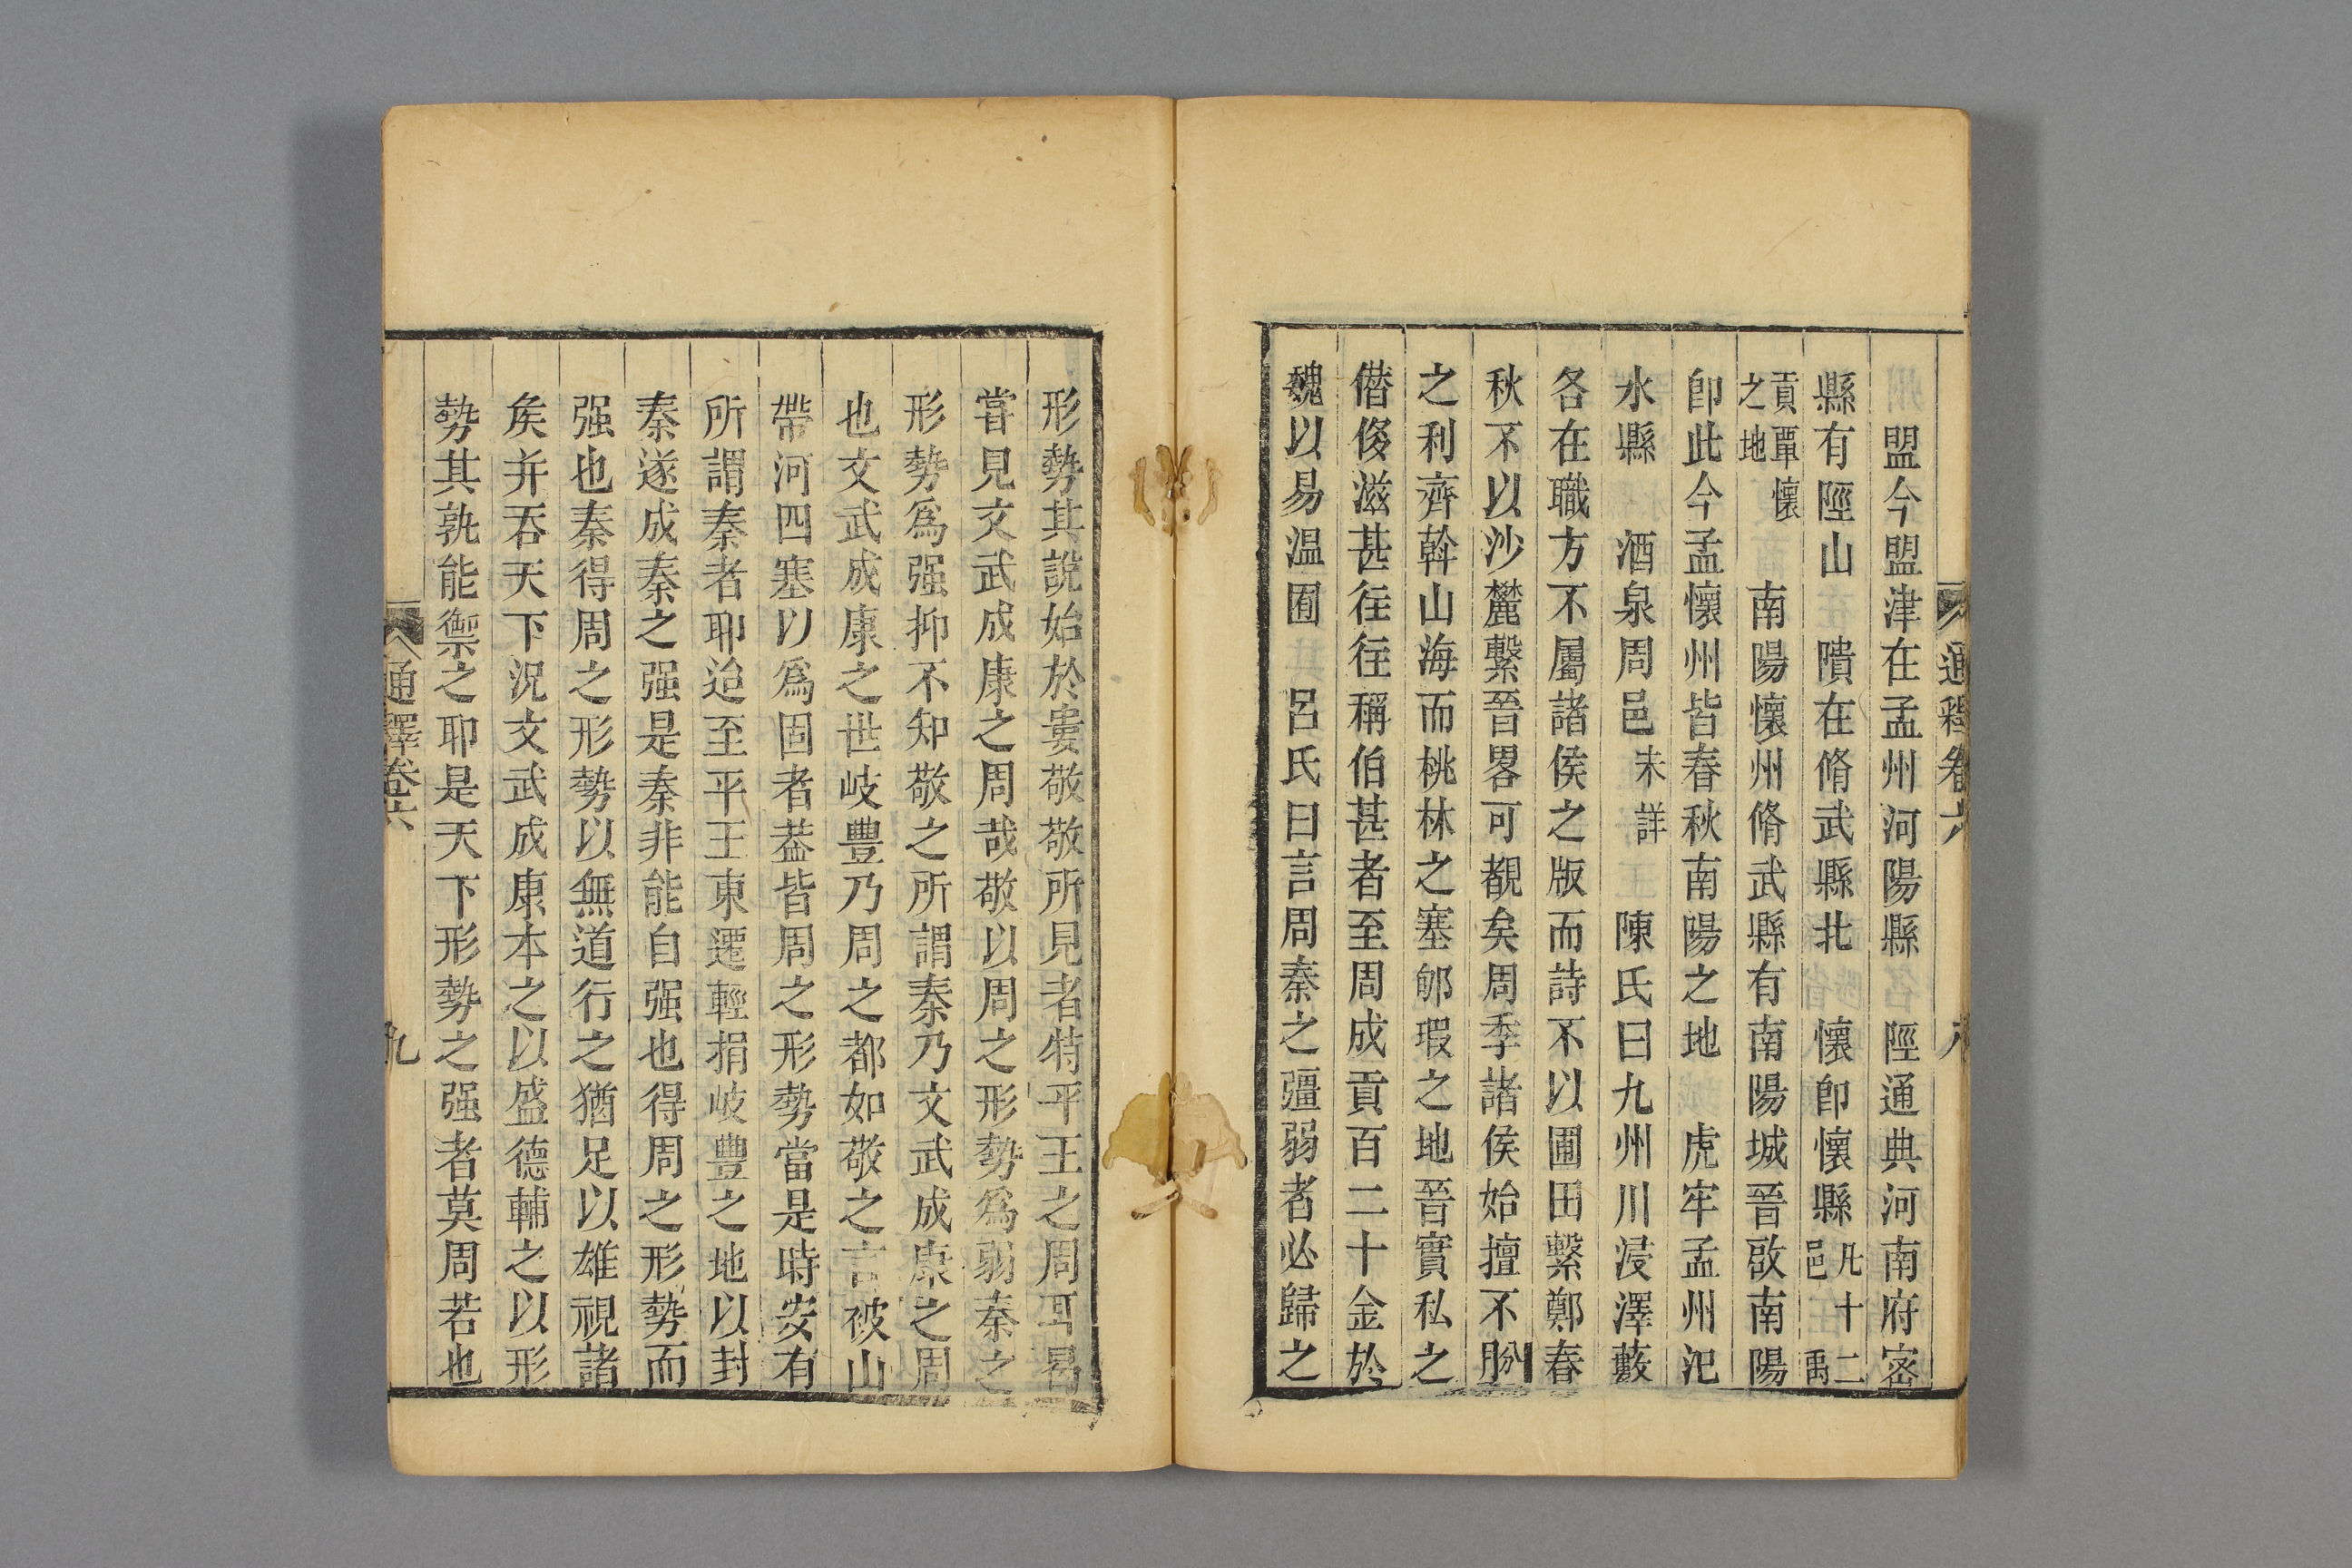 通釋卷六
盟今盟津在孟州河陽縣　陘通典河南府密
縣有陘山　隤在脩武縣北　懷卽懷縣凡十二邑禹
貢覃懷之地　南陽懷州脩武縣有南陽城晉啟南陽
卽此今孟懷州皆春秋南陽之地　虎牢孟州汜
水縣　酒泉周邑未詳　陳氏曰九州川浸澤藪
各在職方不屬諸侯之版而詩不以圃田繫鄭春
秋不以沙麓繫晉畧可覩矣周季諸侯始擅不朌
之利齊斡山海而桃林之塞郇瑕之地晉實私之
僭侈滋甚往往稱伯甚者至周成貢百二十金於
魏以易温囿　呂氏曰言周秦之彊弱者必歸之
形勢其說始於婁敬敬所見者特平王之周耳曷
嘗見文武成康之周哉敬以周之形勢爲弱秦之
形勢爲强抑不知敬之所謂秦乃文武成康之周
也文武成康之世岐豐乃周之都如敬之言被山
帶河四塞以爲固者葢皆周之形勢當是時安有
所謂秦者耶迨至平王東遷輕捐岐豐之地以封
秦遂成秦之强是秦非能自强也得周之形勢而
强也秦得周之形勢以無道行之猶足以雄視諸
矦并吞天下況文武成康本之以盛德輔之以形
勢其孰能禦之耶是天下形勢之强者莫周若也
通釋卷六
九